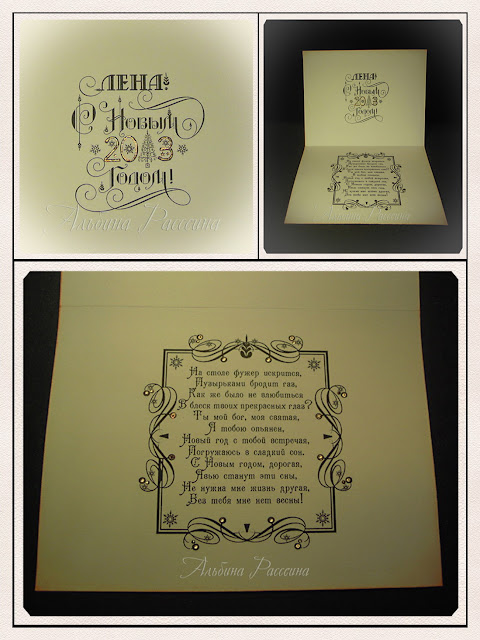 ЛЕНА!
С Новым
2013
Годом!
Альбина Рассина
ЛЕНА!
С Новым
2013
Годом!
Альбина Рассина
На столе фужер искрится,
Пузырьками бродит газ,
Как же было не влюбиться
В блеск твоих прекрасных глаз?
Ты мой бог, моя святая,
Я тобою опьянен,
Новый год с тобой встречая,
Погружаюсь в сладкий сон.
С Новым годом, дорогая,
Явью станут эти сны,
Не нужна мне жизнь другая,
Без тебя мне нет весны!
Альбина Рассина